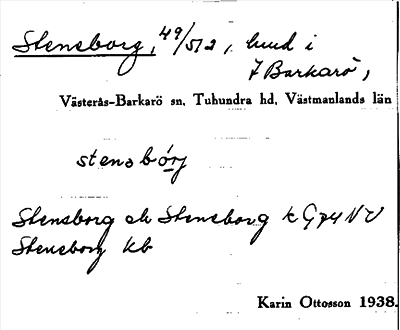 Stensborg, 49/512, lund i
7 Barkarö,
Västerås-Barkarö sn, Tuhundra hd, Västmanlands län
stensbórj
Stensborg eh Stensborg k G74 NV
Stensborg kb
Karin Ottosson 1938.